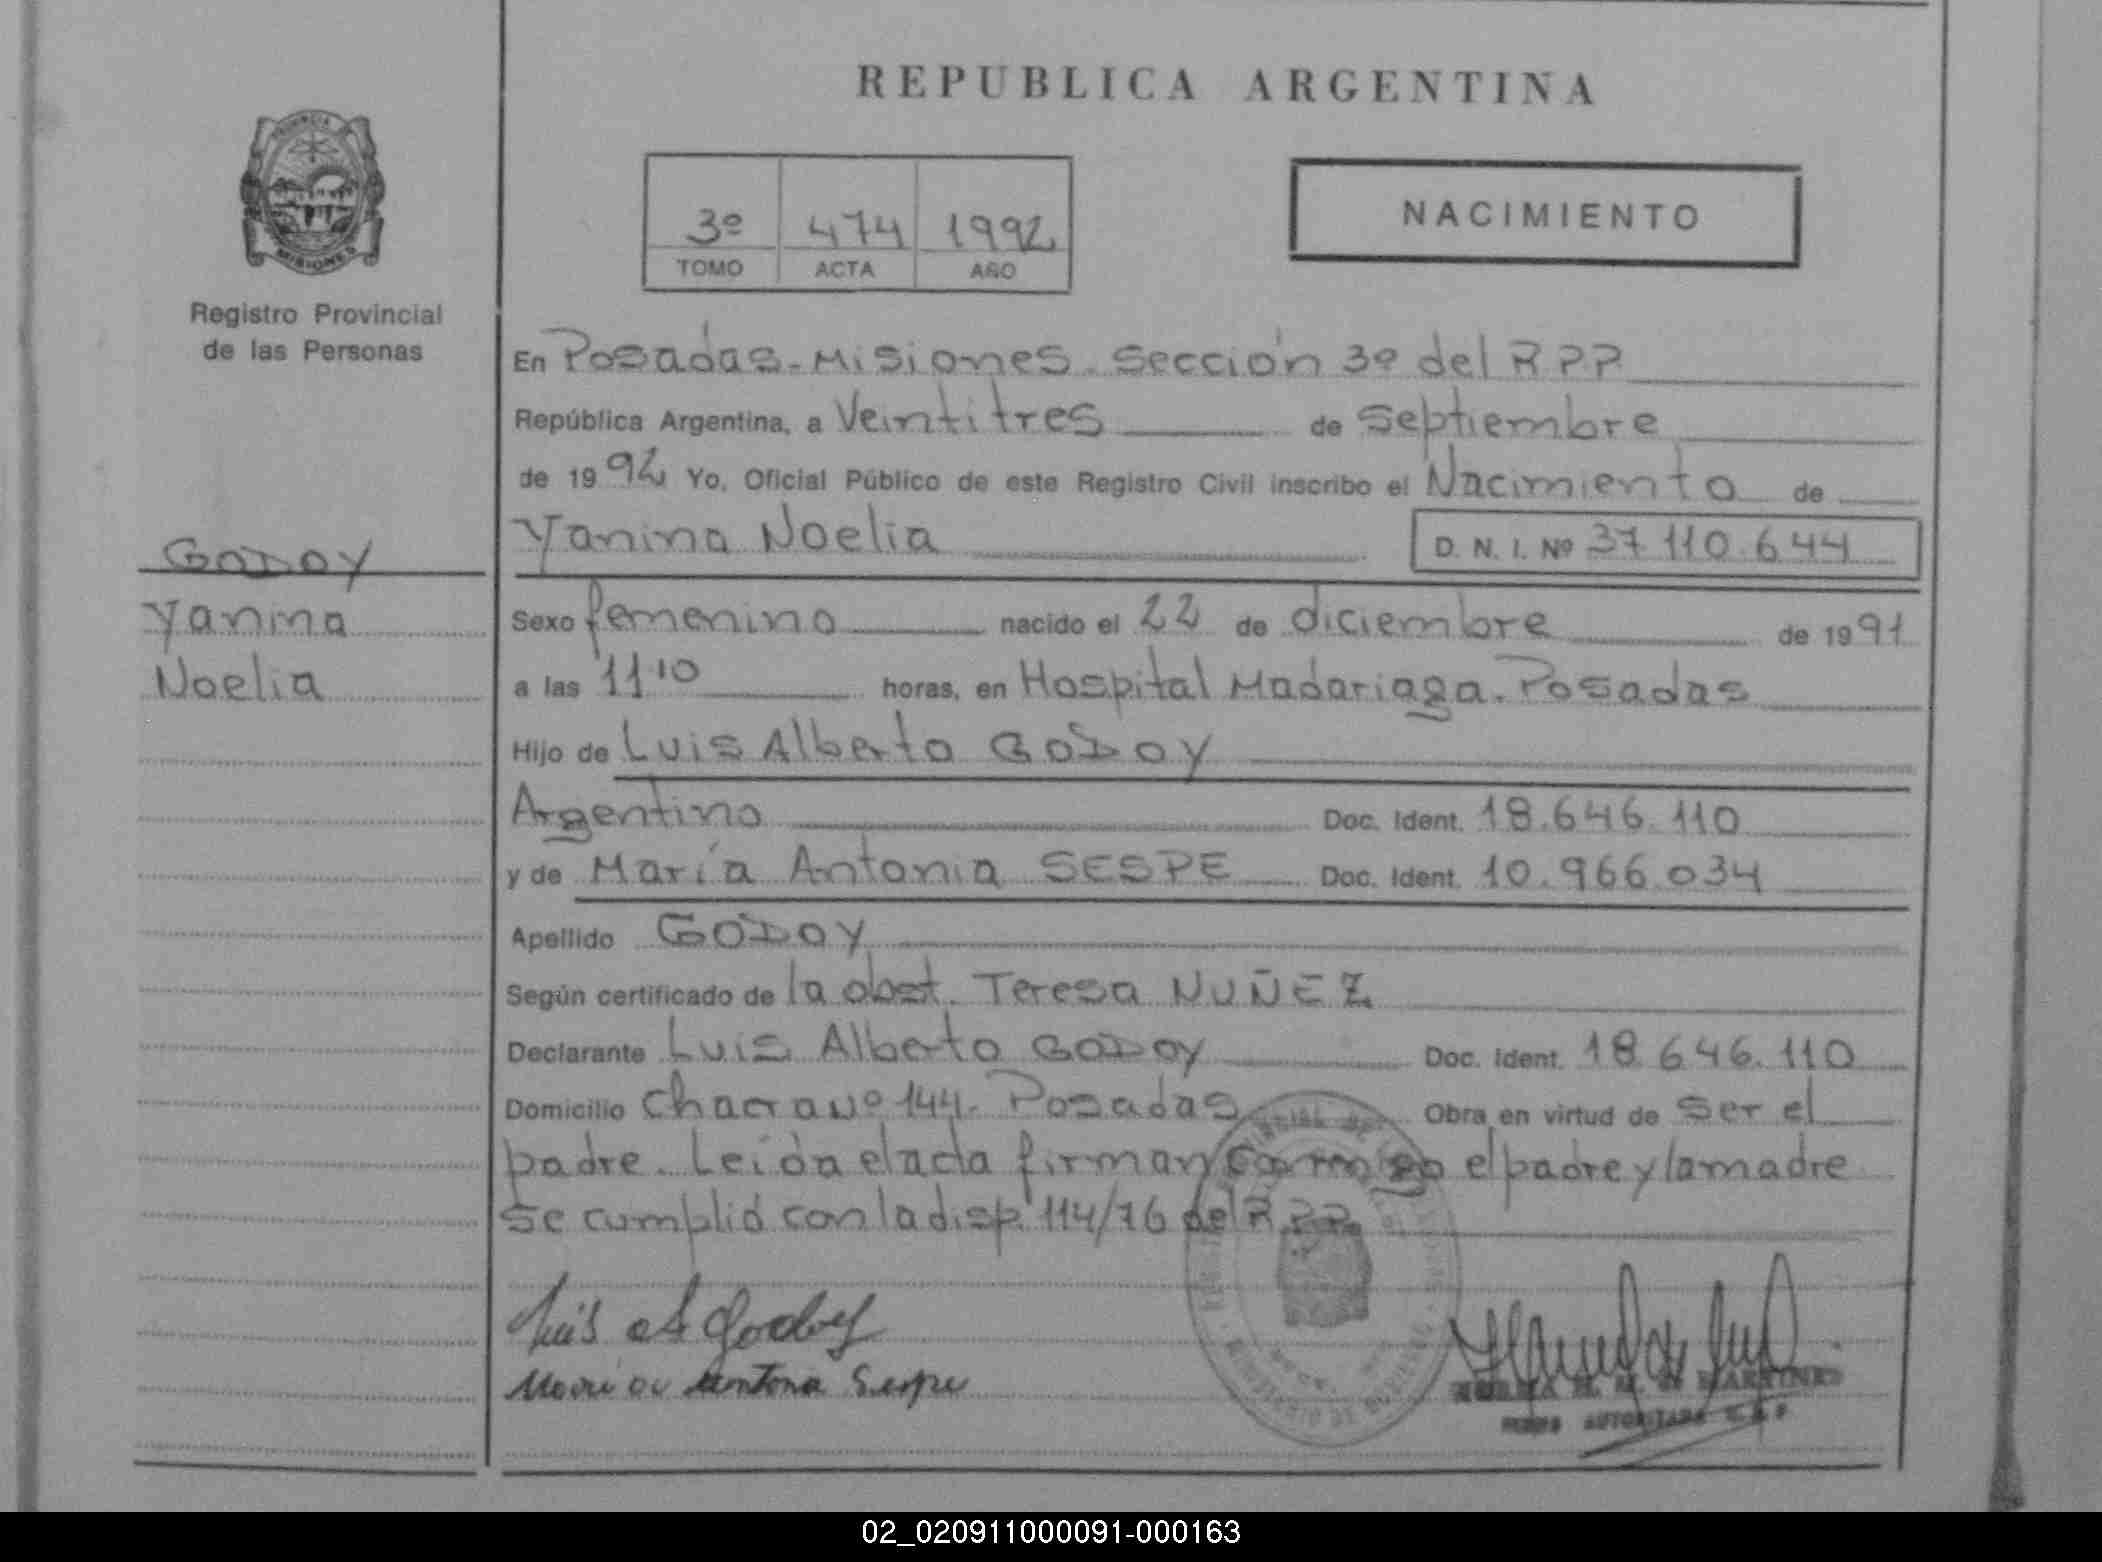 REPUBLICA ARGENTINA
PROVINCIA
MISIONES
Registro Provincial
de las Personas
3º 474 1992
TOMO ACTA AÑO
NACIMIENTO
En Posadas-Misiones. Sección 3º del RPP
República Argentina, a Veintitres de Septiembre
de 1992 Yo, Oficial Público de este Registro Civil inscribo el Nacimiento de
Yanina Noelia D. N. I. Nº 37.110.644
GODOY
Yanina
Noelia
Sexo femenino nacido el 22 de diciembre de 1991
a las 11 10 horas, en Hospital Madariaga. Posadas
Hijo de Luis Alberto GODOY
Argentino Doc. Ident. 18.646.110
y de María Antonia SESPE Doc. Ident. 10.966.034
Apellido GODOY
Según certificado de la obst. Teresa NUÑEZ
Declarante Luis Alberto GODOY Doc. Ident. 18.646.110
Domicilio Chacra Nº 144. Posadas Obra en virtud de ser el
padre. Leída el acta firman conmigo el padre y la madre
se cumplió con la disp. 114/76 del RPP.
Luis A Godoy
Maria Antona Sespe
02_020911000091-000163